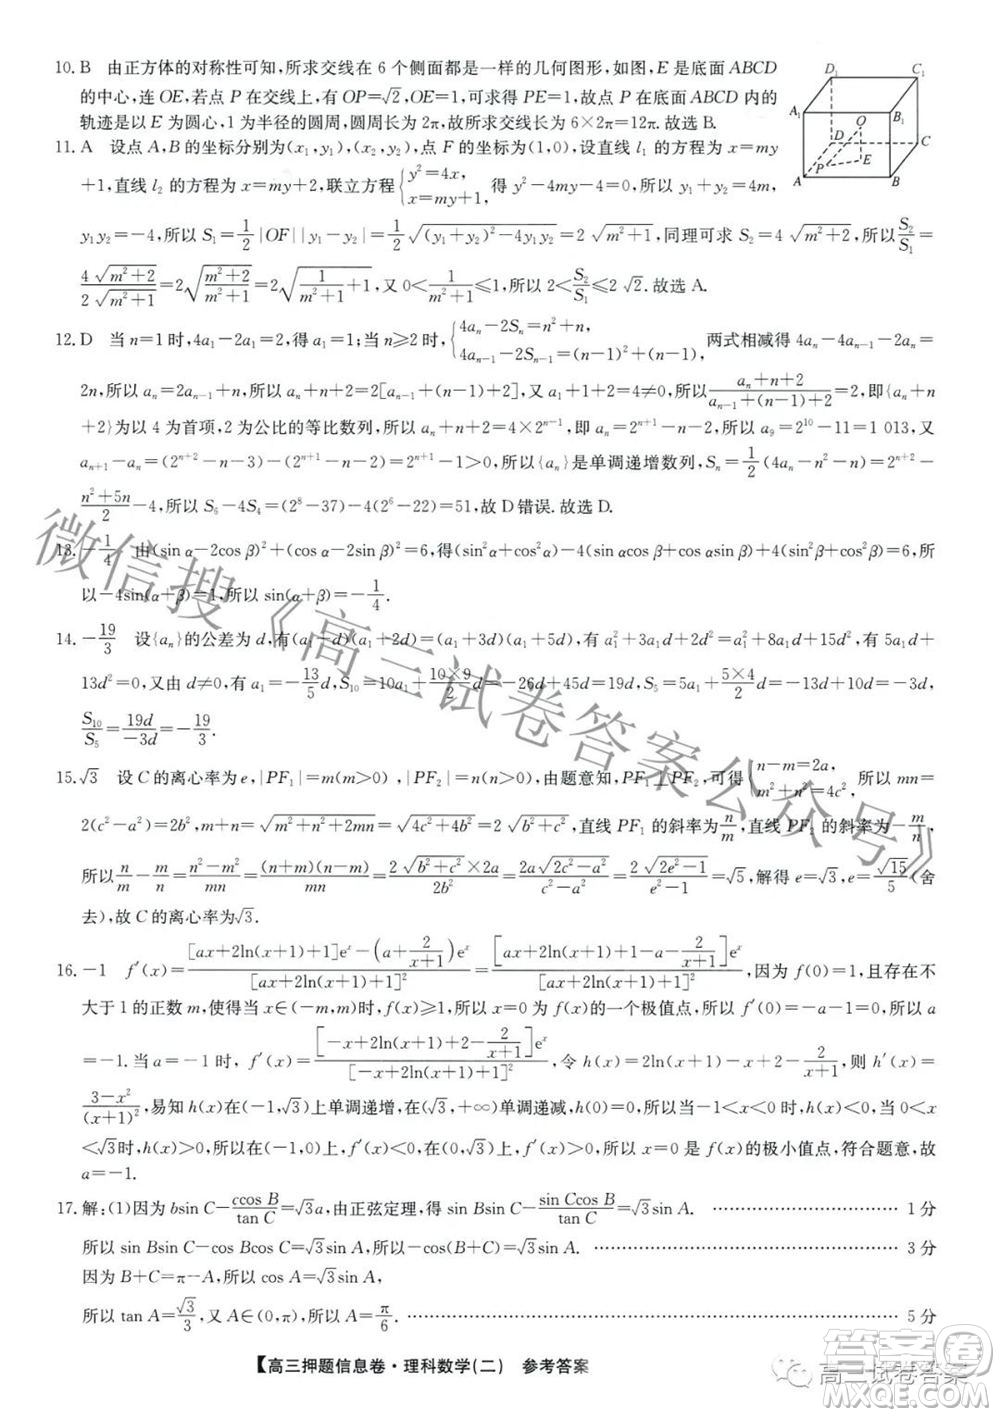 10. B　由正方体的对称性可知,所求交线在 6 个侧面都是一样的几何图形,如图,E 是底面 ABCD
的中心,连 OE,若点 P 在交线上,有 OP=√2,OE=1,可求得 PE=1,故点 P 在底面 ABCD 内的
轨迹是以 E 为圆心,1 为半径的圆周,圆周长为 2π,故所求交线长为 6×2π=12π.故选 B.
D₁ C₁ A₁ B₁ O D C P E A B
11. A　设点 A,B 的坐标分别为(x₁,y₁),(x₂,y₂),点 F 的坐标为(1,0),设直线 l₁ 的方程为 x=my
+1,直线 l₂ 的方程为 x=my+2,联立方程{y²=4x, x=my+1, 得 y²-4my-4=0,所以 y₁+y₂=4m,
y₁y₂=-4,所以 S₁=1/2|OF||y₁-y₂|=1/2√((y₁+y₂)²-4y₁y₂)=2√(m²+1),同理可求 S₂=4√(m²+2),所以 S₂/S₁=
4√(m²+2)/2√(m²+1)=2√((m²+2)/(m²+1))=2√(1/(m²+1)+1),又 0<1/(m²+1)≤1,所以 2<S₂/S₁≤2√2.故选 A.
12. D　当 n=1 时,4a₁-2a₁=2,得 a₁=1;当 n≥2 时,{4aₙ-2Sₙ=n²+n, 4aₙ₋₁-2Sₙ₋₁=(n-1)²+(n-1), 两式相减得 4aₙ-4aₙ₋₁-2aₙ=
2n,所以 aₙ=2aₙ₋₁+n,所以 aₙ+n+2=2[aₙ₋₁+(n-1)+2],又 a₁+1+2=4≠0,所以(aₙ+n+2)/(aₙ₋₁+(n-1)+2)=2,即{aₙ+n
+2}为以 4 为首项,2 为公比的等比数列,所以 aₙ+n+2=4×2ⁿ⁻¹,即 aₙ=2ⁿ⁺¹-n-2,所以 a₉=2¹⁰-11=1 013,又
aₙ₊₁-aₙ=(2ⁿ⁺²-n-3)-(2ⁿ⁺¹-n-2)=2ⁿ⁺¹-1>0,所以{aₙ}是单调递增数列,Sₙ=1/2(4aₙ-n²-n)=2ⁿ⁺²-
(n²+5n)/2-4,所以 S₆-4S₄=(2⁸-37)-4(2⁶-22)=51,故 D 错误.故选 D.
13. -1/4　由(sin α-2cos β)²+(cos α-2sin β)²=6,得(sin²α+cos²α)-4(sin αcos β+cos αsin β)+4(sin²β+cos²β)=6,所
以-4sin(α+β)=1,所以 sin(α+β)=-1/4.
14. -19/3　设{aₙ}的公差为 d,有(a₁-d)(a₁+2d)=(a₁+3d)(a₁+5d),有 a₁²+3a₁d+2d²=a₁²+8a₁d+15d²,有 5a₁d+
13d²=0,又由 d≠0,有 a₁=-13/5 d,S₁₀=10a₁+(10×9)/2 d=-26d+45d=19d,S₅=5a₁+(5×4)/2 d=-13d+10d=-3d,
S₁₀/S₅=19d/-3d=-19/3.
15. √3　设 C 的离心率为 e,|PF₁|=m(m>0),|PF₂|=n(n>0),由题意知,PF₁⊥PF₂,可得{n-m=2a, m²+n²=4c², 所以 mn=
2(c²-a²)=2b²,m+n=√(m²+n²+2mn)=√(4c²+4b²)=2√(b²+c²),直线 PF₁ 的斜率为n/m,直线 PF₂ 的斜率为-m/n,
所以n/m-m/n=(n²-m²)/mn=(n+m)(n-m)/mn=2√(b²+c²)×2a/2b²=2a√(2c²-a²)/(c²-a²)=2√(2e²-1)/(e²-1)=√5,解得 e=√3,e=√15/5(舍
去),故 C 的离心率为√3.
16. -1　f′(x)=([ax+2ln(x+1)+1]eˣ-(a+2/(x+1))eˣ)/[ax+2ln(x+1)+1]²=[ax+2ln(x+1)+1-a-2/(x+1)]eˣ/[ax+2ln(x+1)+1]²,因为 f(0)=1,且存在不
大于 1 的正数 m,使得当 x∈(-m,m)时,f(x)≥1,所以 x=0 为 f(x)的一个极值点,所以 f′(0)=-a-1=0,所以 a
=-1.当 a=-1 时,f′(x)=[-x+2ln(x+1)+2-2/(x+1)]eˣ/[-x+2ln(x+1)+1]²,令 h(x)=2ln(x+1)-x+2-2/(x+1),则 h′(x)=
(3-x²)/(x+1)²,易知 h(x)在(-1,√3)上单调递增,在(√3,+∞)上单调递减,h(0)=0,所以当-1<x<0 时,h(x)<0,当 0<x
<√3时,h(x)>0,所以在(-1,0)上,f′(x)<0,在(0,√3)上,f′(x)>0,所以 x=0 是 f(x)的极小值点,符合题意,故
a=-1.
17. 解:(1)因为 bsin C-ccos B/tan C=√3a,由正弦定理,得 sin Bsin C-sin Ccos B/tan C=√3sin A. ………… 1 分
所以 sin Bsin C-cos Bcos C=√3sin A. ………… 3 分
因为 B+C=π-A,所以 cos A=√3sin A,
所以 tan A=√3/3,又 A∈(0,π),所以 A=π/6. ………… 5 分
【高三押题信息卷·理科数学(二)　参考答案】
微信搜《高三试卷答案公众号》
高三试卷答案
答案圈
MXQE.COM